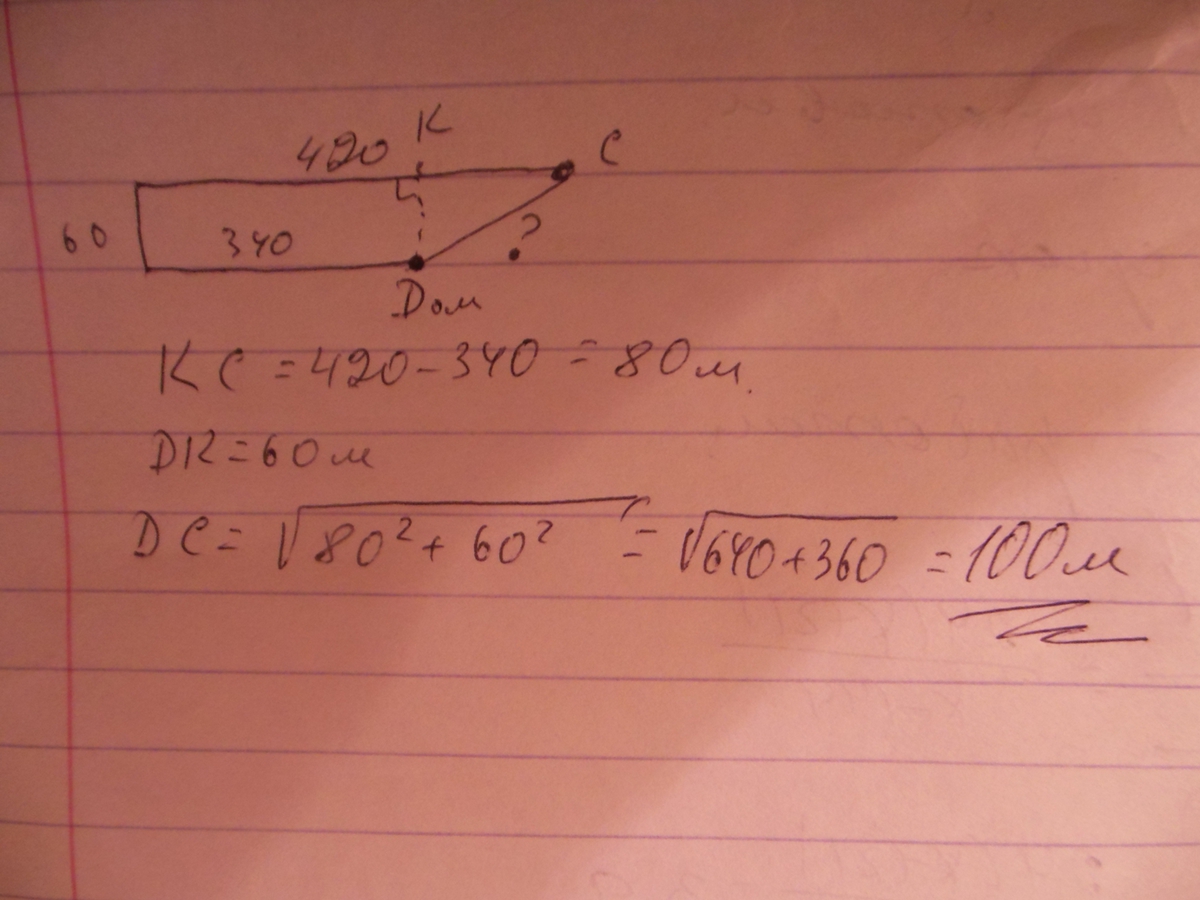 К
420
С
60
340
?
Дом
КС = 420 - 340 = 80м.
DK = 60м
DC = √80² + 60² = √640 + 360 = 100м